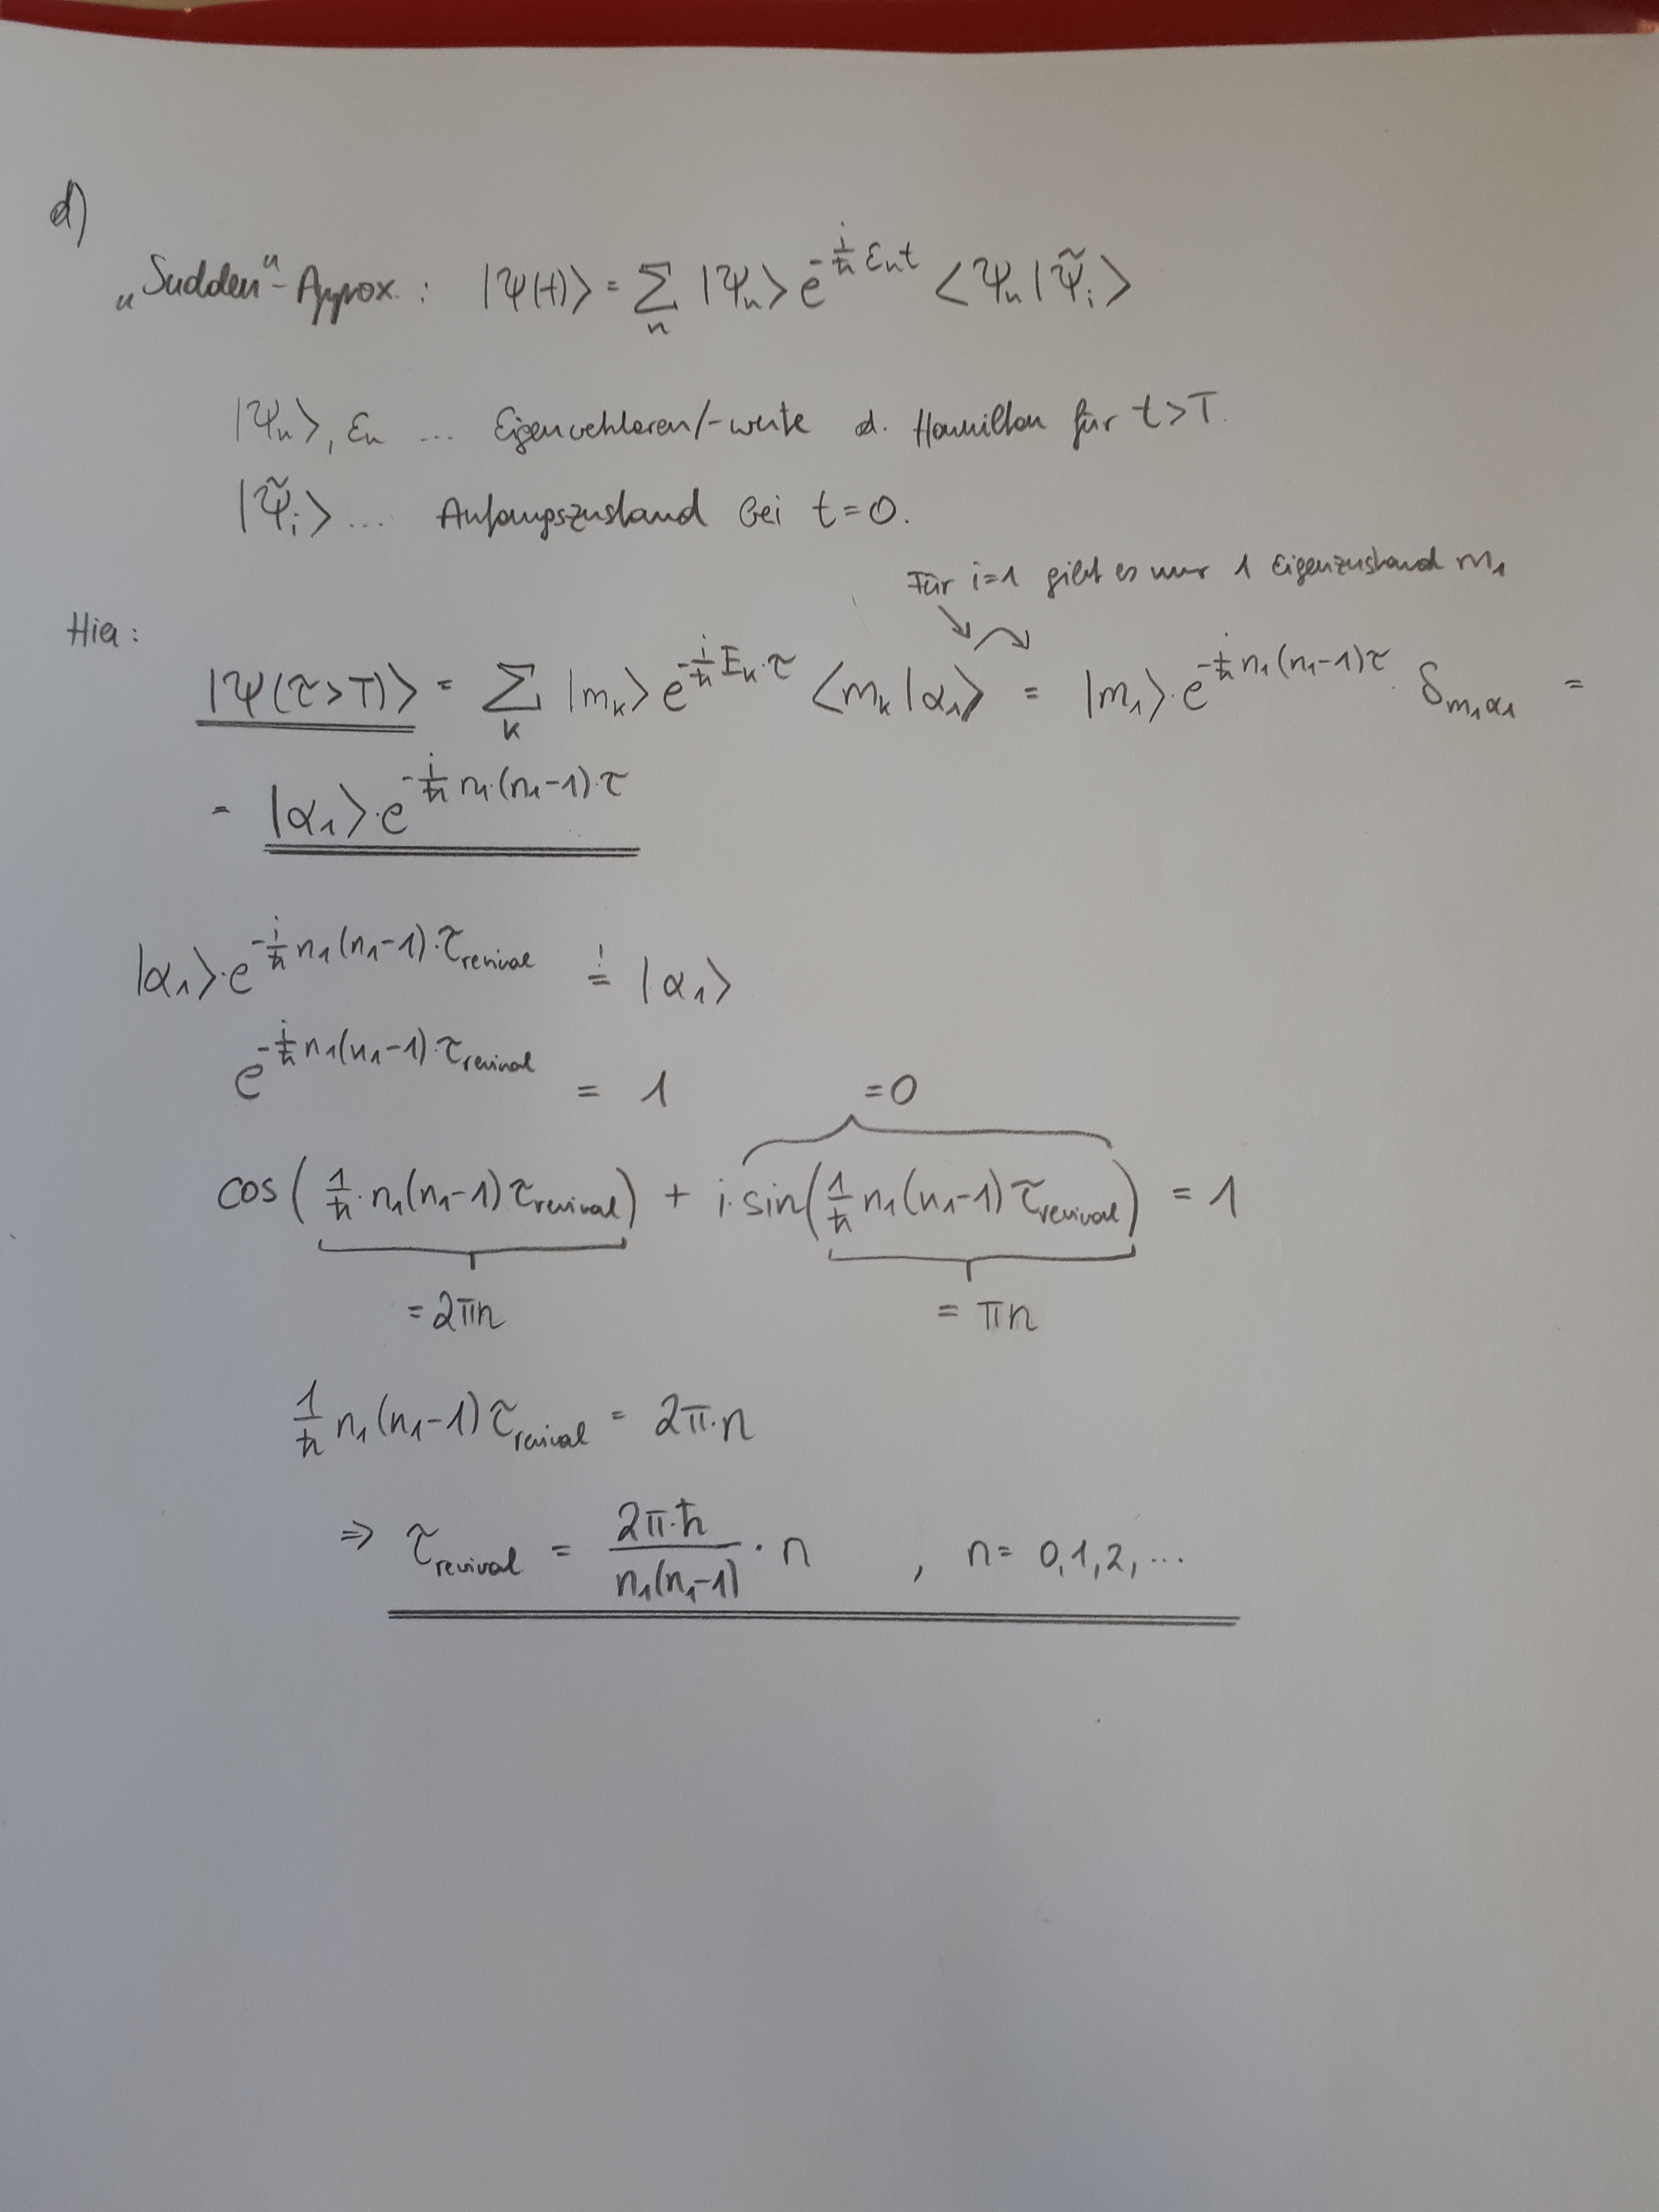 d)
„Sudden“-Approx.: |Ψ(t)⟩ = ∑_n |Ψ_n⟩ e^{-i/ħ ε_n t} ⟨Ψ_n|Ψ̃_i⟩
|Ψ_n⟩, ε_n ... Eigenvektoren/-werte d. Hamilton für t>T.
|Ψ̃_i⟩ ... Anfangszustand bei t=0.
Für i=1 gibt es nur 1 Eigenzustand m_1
Hier:
|Ψ(τ>T)⟩ = ∑_k |m_k⟩ e^{-i/ħ E_k·τ} ⟨m_k|α_1⟩ = |m_1⟩·e^{-i/ħ n_1(n_1-1)τ} · δ_{m_1α_1} =
= |α_1⟩·e^{-i/ħ n_1·(n_1-1)·τ}
|α_1⟩·e^{-i/ħ n_1(n_1-1)·τ_revival} =! |α_1⟩
e^{-i/ħ n_1(n_1-1)·τ_revival} = 1
=0
cos(1/ħ · n_1(n_1-1) τ_revival) + i·sin(1/ħ n_1(n_1-1) τ_revival) = 1
= 2πn = πn
1/ħ n_1(n_1-1) τ_revival = 2π·n
⇒ τ_revival = 2π·ħ / n_1(n_1-1) · n , n= 0,1,2,...